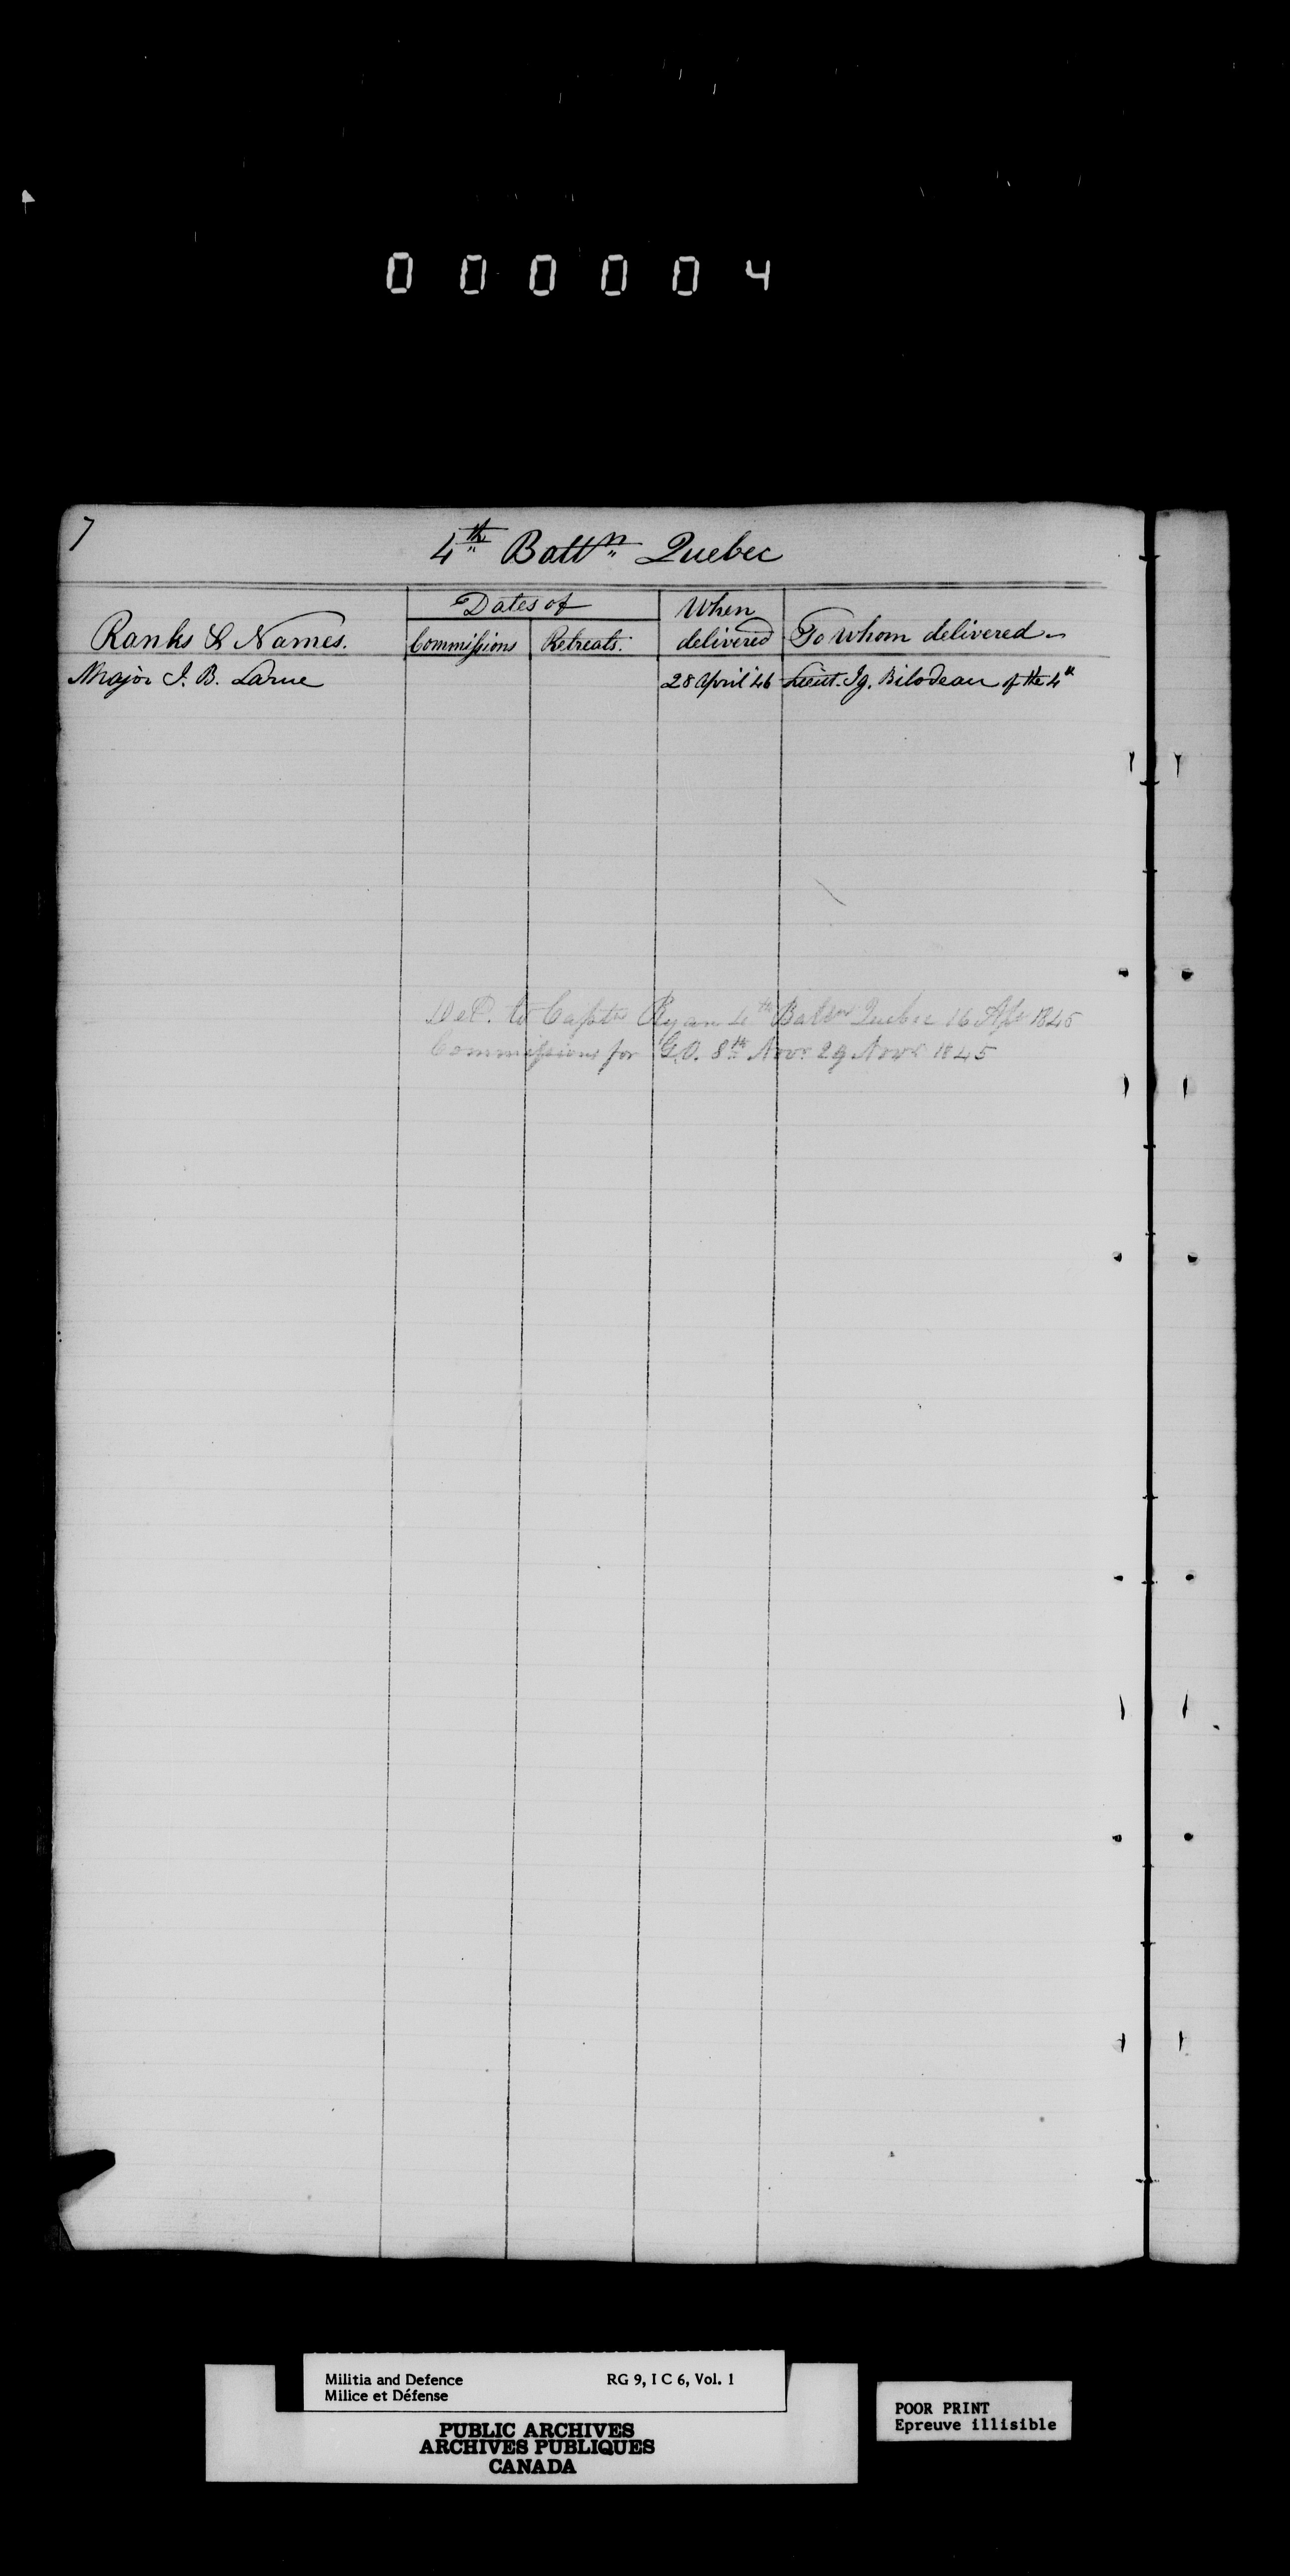 000004
7
4th Battn Quebec
Ranks & Names.
Dates of
Commissions
Retreats.
When delivered
To Whom delivered
Major J. B. Larue
28 April 46
Lieut. Ig. Bilodeau of the 4th
Del. to Captn Ryan 4th Batn Quebec 16 Apl 1845
Commissions for G.O. 8th Novr 29 Novr 1845
Militia and Defence
Milice et Défense
RG 9, I C 6, Vol. 1
PUBLIC ARCHIVES
ARCHIVES PUBLIQUES
CANADA
POOR PRINT
Epreuve illisible